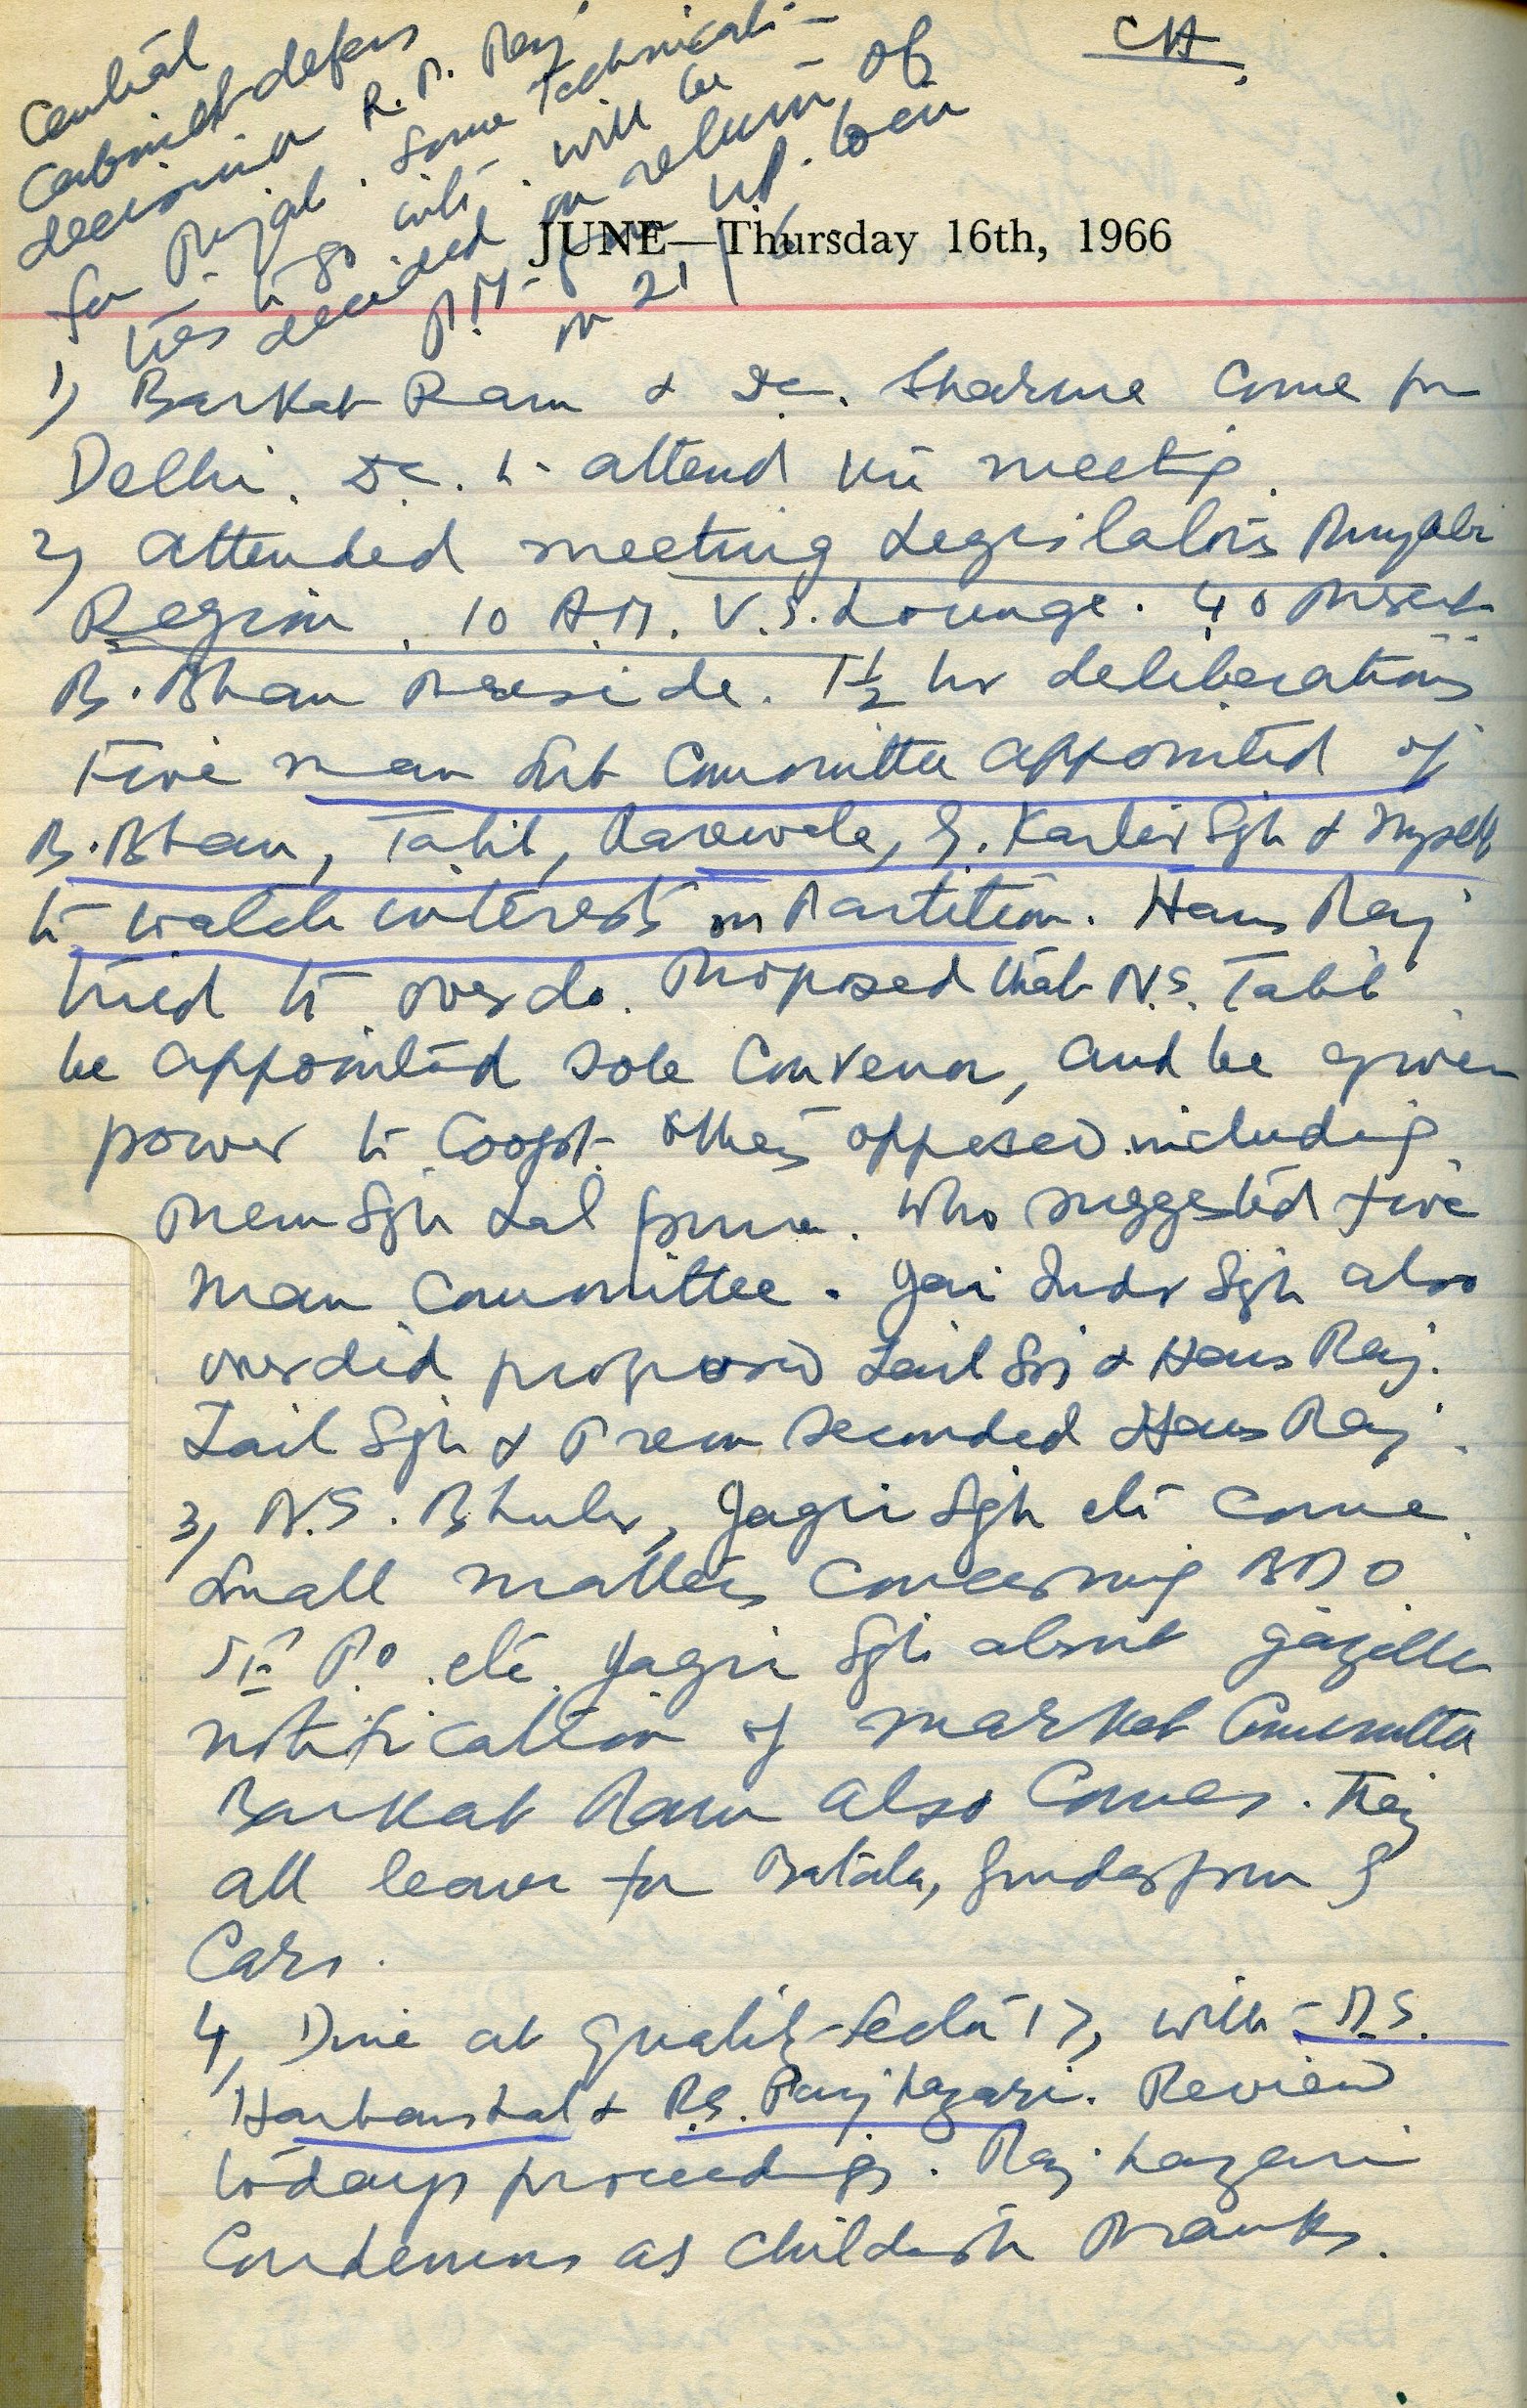 CH.
Central
Cabinet defers
decision R. P. Raj
for Punjab. Some technicali-
ties to go into. will be
decided on return of
P.M. from up. tour
on 21/6
JUNE—Thursday 16th, 1966
1) Barkat Ram & Dc. Sharma Come from
Delhi. Dc. to attend the meeting.
2) Attended meeting Legislators Punjabi
Region. 10 A.M. V.S. Lounge. 40 Present
B. Bhan Preside. 1½ hr deliberations
Five man Sub Committee appointed of
B. Bhan, Talib, Rarewala, G. Kartar Sgh & Myself
to watch interests on Partition. Hans Raj
tried to over do. Proposed that N.S. Talib
be appointed sole Convenor, and be given
power to Coopt. others opposed including
Prem Sgh Lal pura. Who suggested five
man Committee. Jai Inder Sgh also
overdid proposed Zail Sgh & Hans Raj.
Zail Sgh & Prem Seconded Hans Raj.
3) N.S. Bhuler, Jagir Sgh etc come.
Small matters concerning BDO
etc. Jagir Sgh about gazette
notification of market Committee
Barkat Ram also Comes. They
all leave for Batala, Gurdaspur &
Cars.
4) Dine at Quality Sector 17, with
Harbans Lal & R.S. Panj hazari. Review
todays proceedings. Panj hazari
Condemns as Childish Pranks.